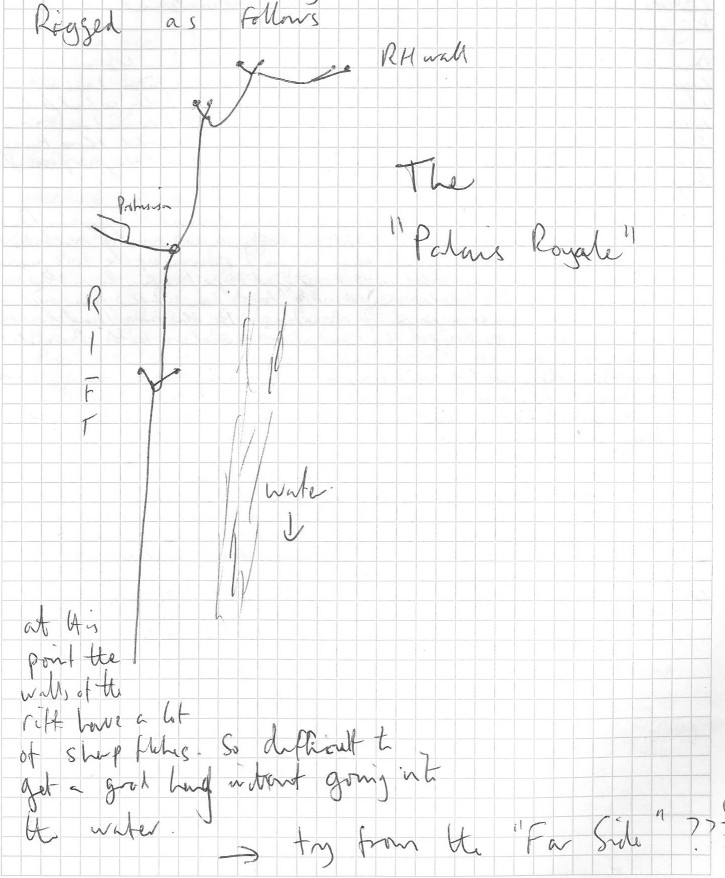 Rigged as follows
RH wall
The
"Palais Royale"
Protrusion
R
I
F
T
water
at this
point the
walls of the
rift have a lot
of sharp flutes. So difficult to
get a good hang without going into
the water.
→ try from the "Far Side" ???